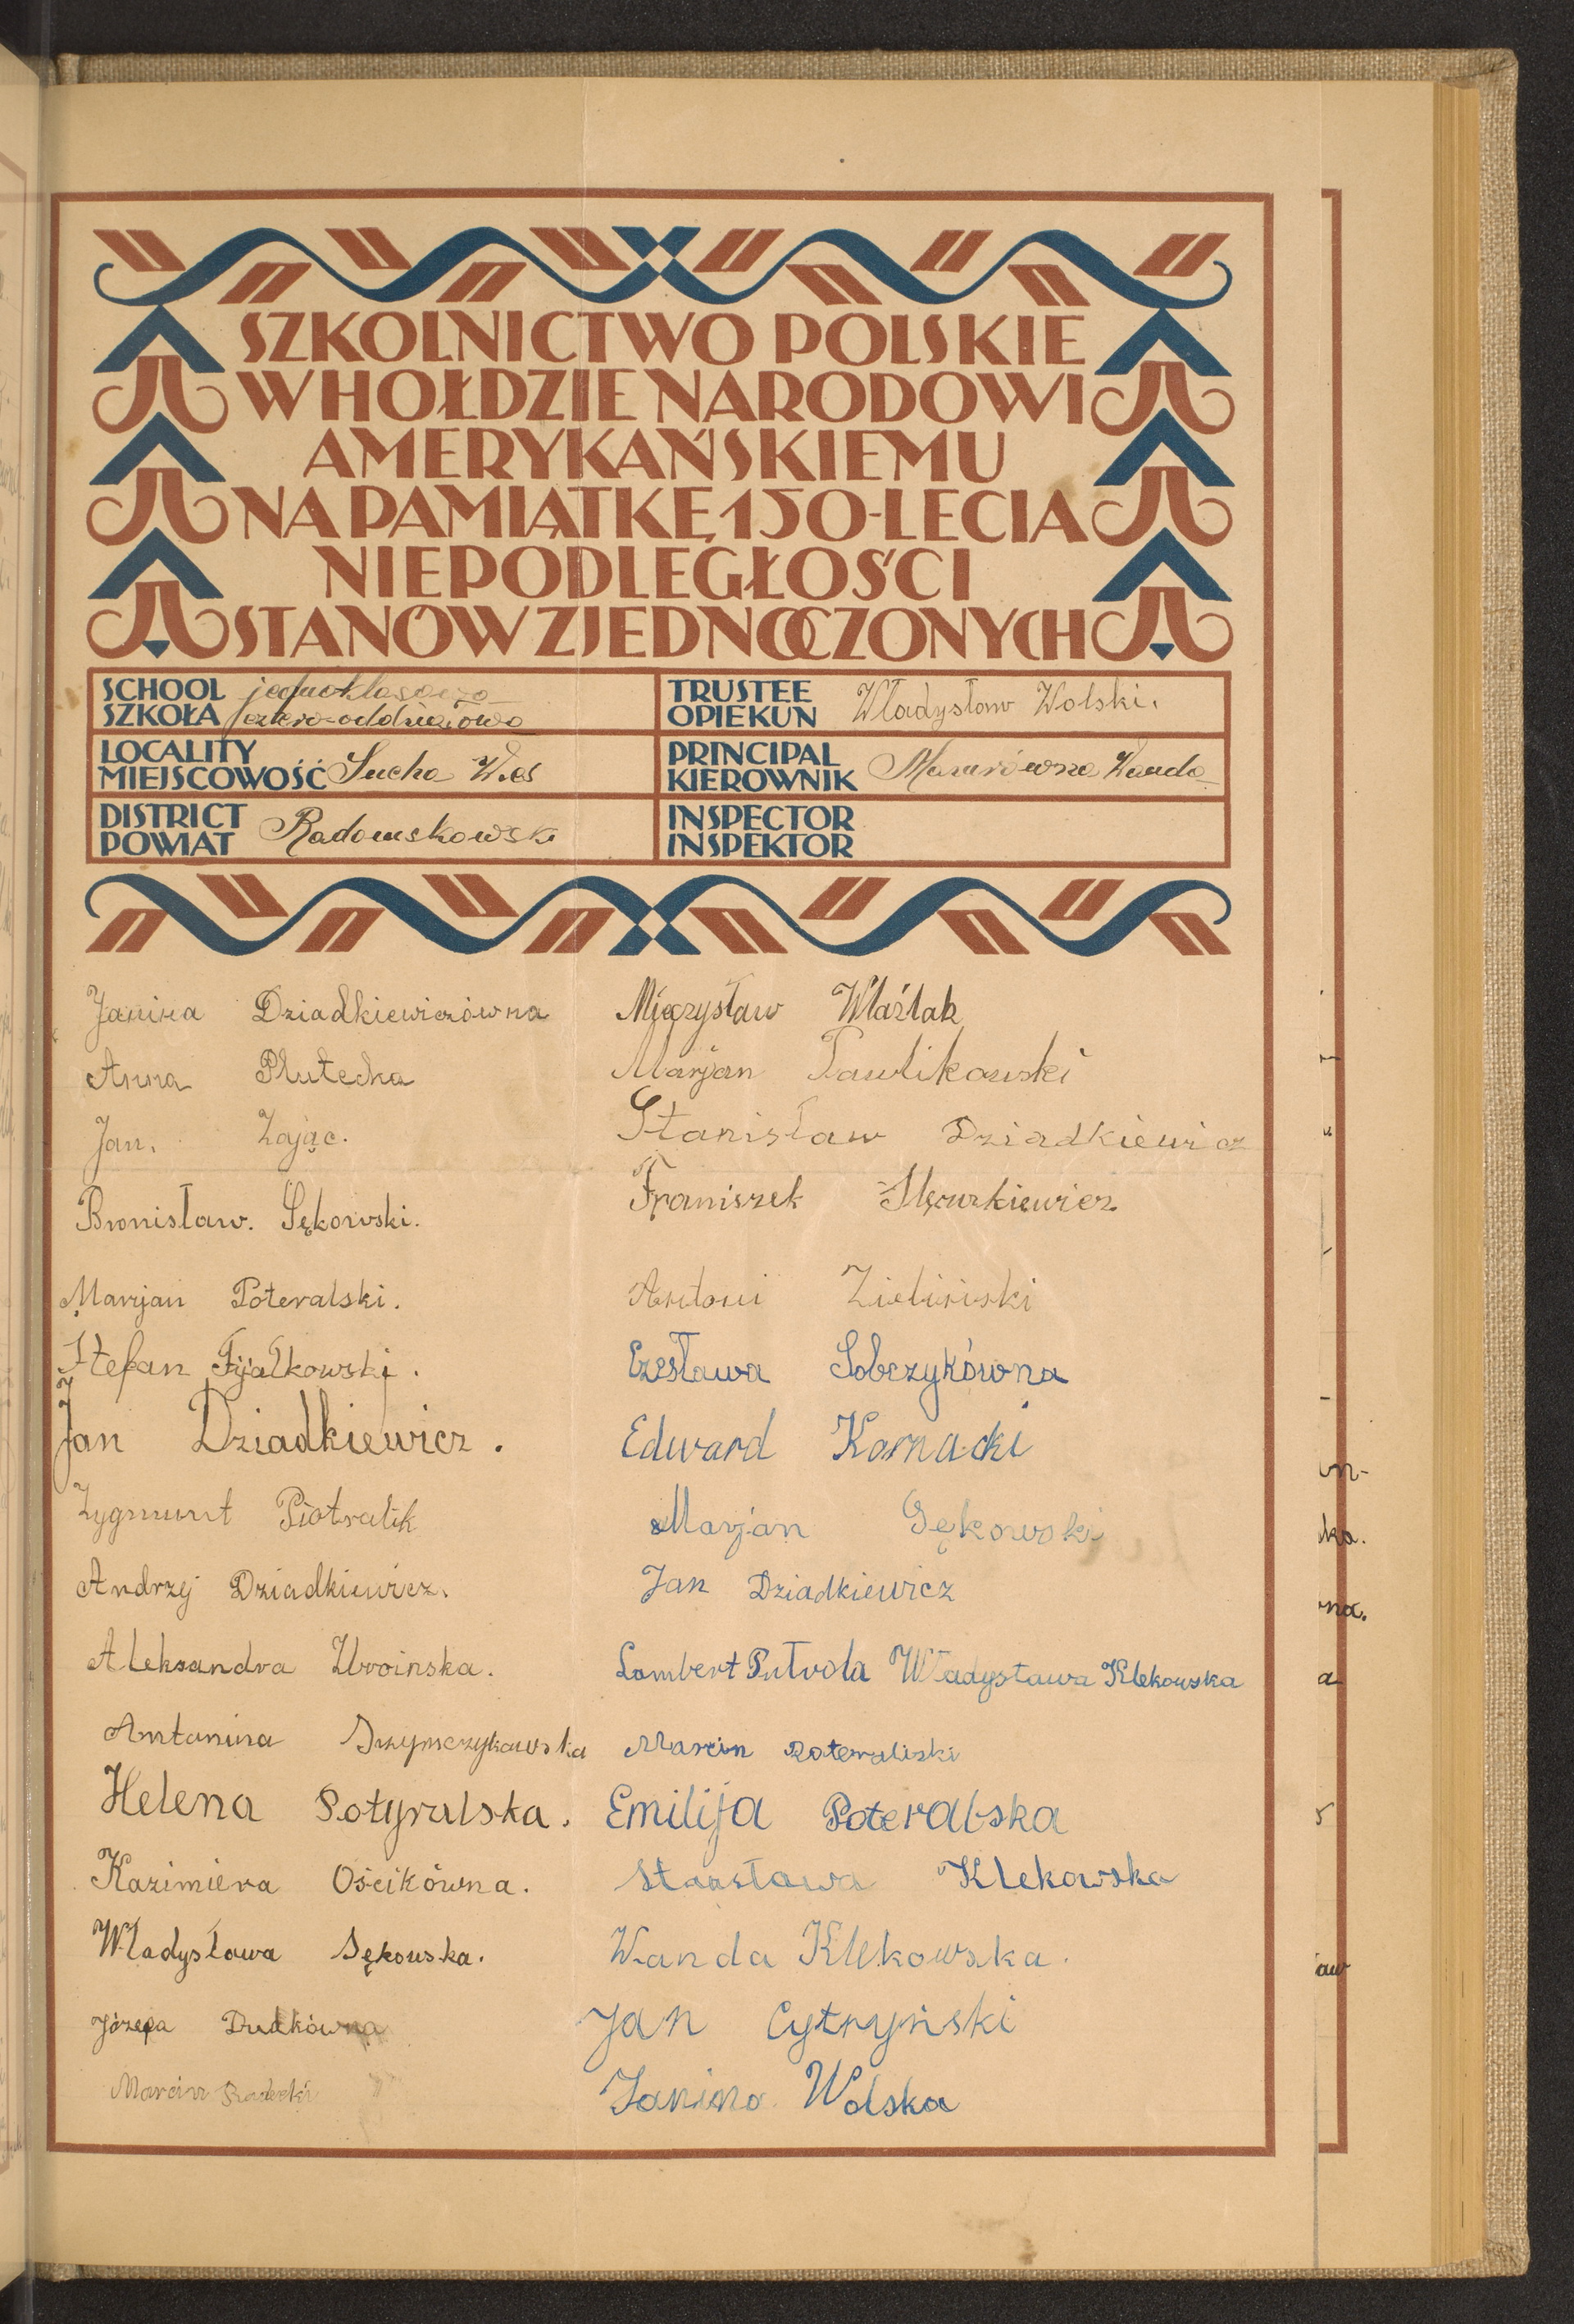 SZKOLNICTWO POLSKIE
W HOŁDZIE NARODOWI
AMERYKAŃSKIEMU
NA PAMIĄTKĘ 150-LECIA
NIEPODLEGŁOŚCI
STANÓW ZJEDNOCZONYCH
SCHOOL
SZKOŁA
jednoklasowa
cztero-oddziałowa
TRUSTEE
OPIEKUN
Władysław Wolski.
LOCALITY
MIEJSCOWOŚĆ
Sucha Wieś
PRINCIPAL
KIEROWNIK
Mazurówna Wanda
DISTRICT
POWIAT
Radomskowski
INSPECTOR
INSPEKTOR
Janina Dziadkiewiczówna
Anna Plutecka
Jan. Zając.
Bronisław. Sękowski.
Marjan Poteralski.
Stefan Fijałkowski.
Jan Dziadkiewicz.
Zygmunt Piotralik
Andrzej Dziadkiewicz.
Aleksandra Zbroinska.
Antonina Szymczykowska
Helena Potyralska.
Kazimiera Ościkówna.
Władysława Sękowska.
Józefa Dudkówna
Marcin Radecki
Mięczysław Wlaźlak
Marjan Pawlikowski
Stanisław Dziadkiewicz
Franiszek
Antoni Zieliński
Czesława Sobczykówna
Edward Karnacki
Marjan Sękowski
Jan Dziadkiewicz
Lambert Putrola Władysława Klekowska
Marcin Poteraliski
Emilija Poteralska
Klekowska
Wanda Klekowska.
Jan Cytryński
Janina Wolska
ka.
na.
a
aw